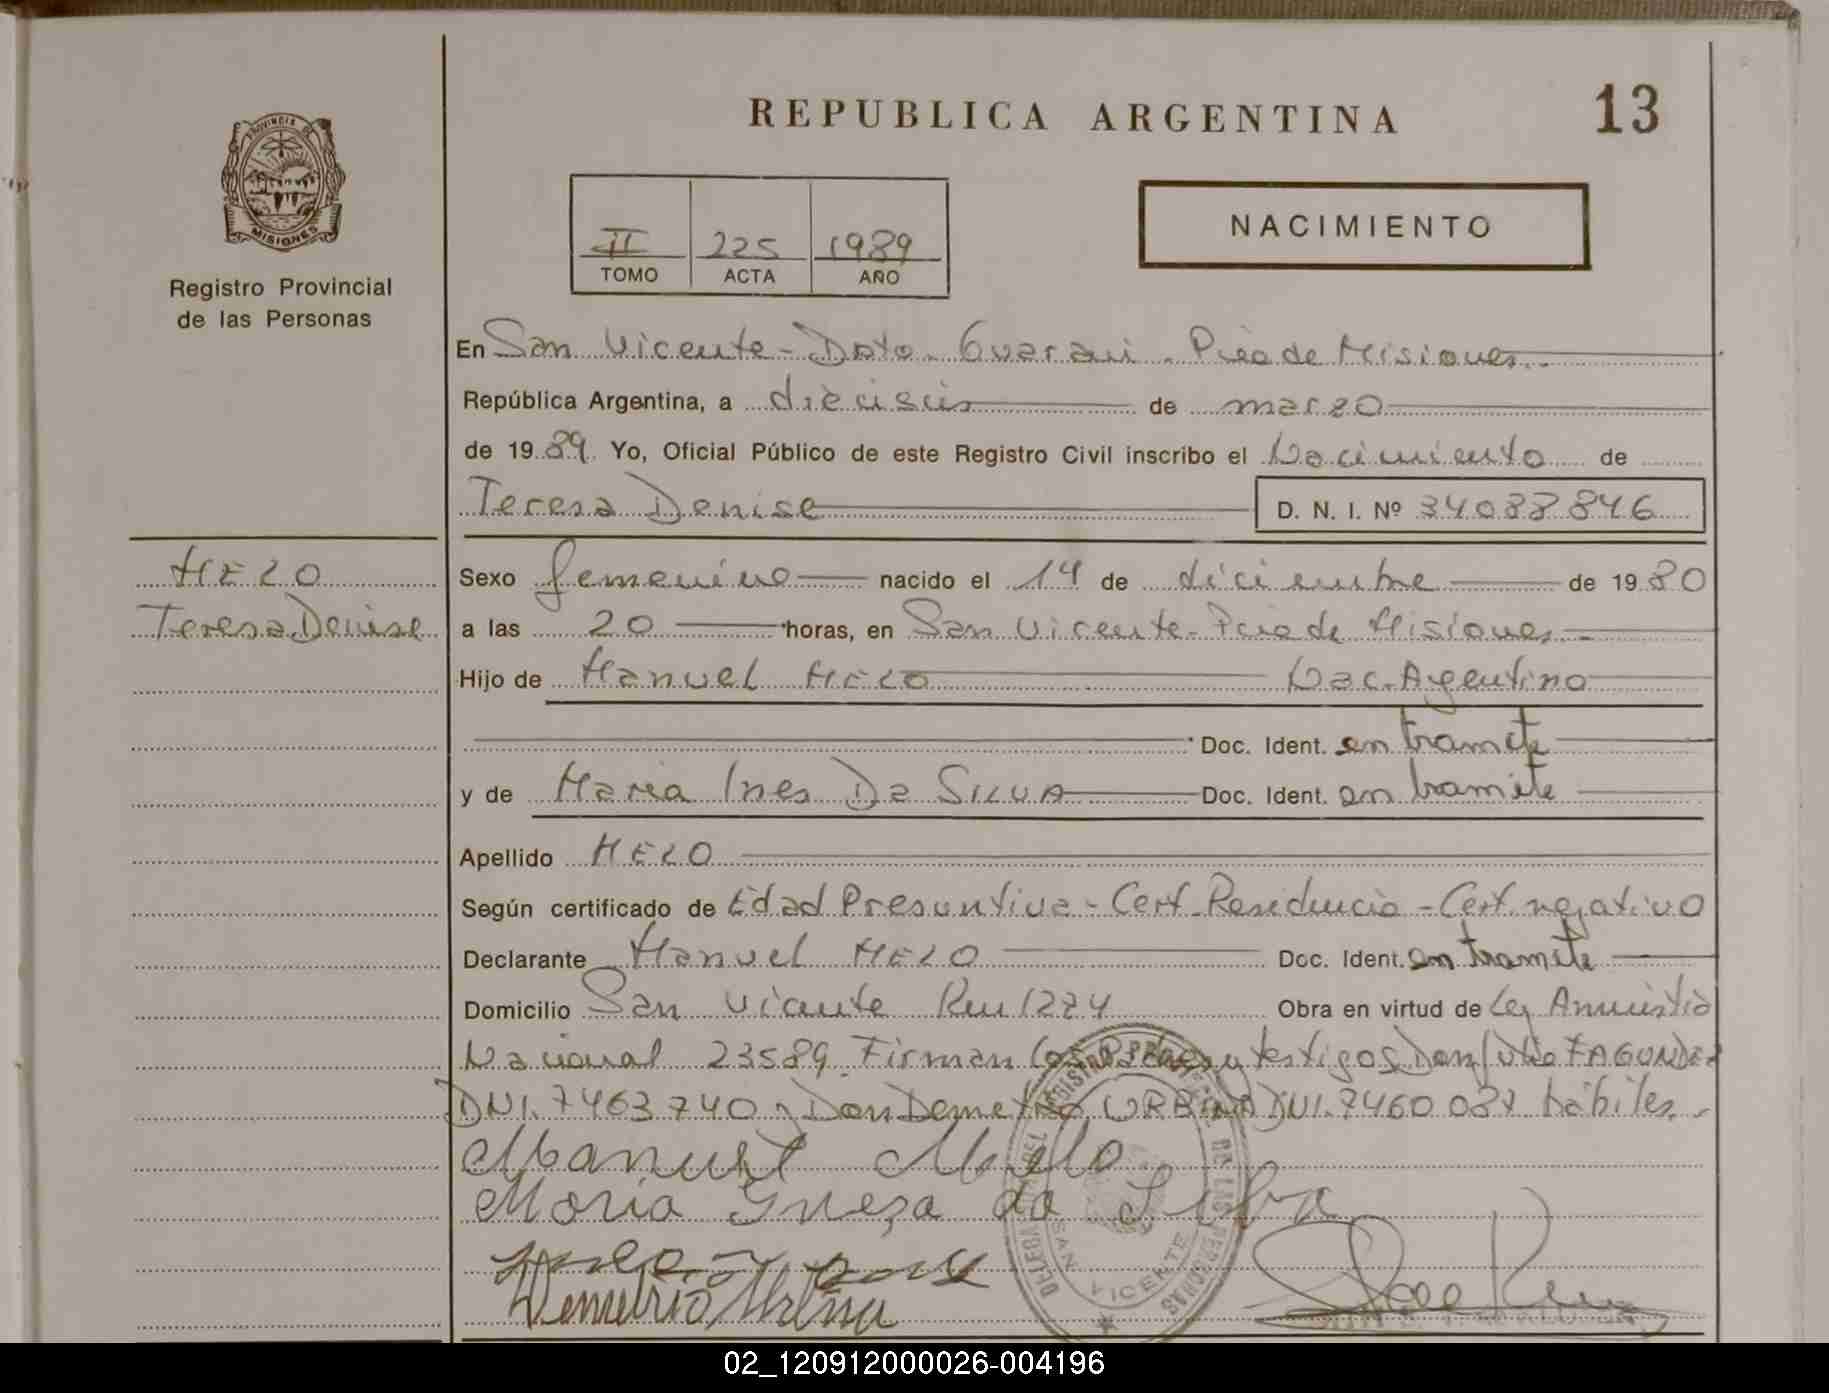 REPUBLICA ARGENTINA
13
PROVINCIA DE
MISIONES
Registro Provincial
de las Personas
II 225 1989
TOMO ACTA AÑO
NACIMIENTO
En San Vicente - Dpto. Guarani - Pcia de Misiones.-
República Argentina, a dieciseis de marzo
de 19 89. Yo, Oficial Público de este Registro Civil inscribo el Nacimiento de
Teresa Denise D. N. I. Nº 34088846
MELO
Teresa Denise
Sexo femenino nacido el 14 de diciembre de 19 80
a las 20 horas, en San Vicente - Pcia de Misiones -
Hijo de Manuel MELO Nac. Argentino
Doc. Ident. en tramite
y de Maria Ines Da SILVA Doc. Ident. en tramite
Apellido MELO
Según certificado de Edad Presuntiva - Cert. Residencia - Cert. negativo
Declarante Manuel MELO Doc. Ident. en tramite
Domicilio San Vicente Km 1274 Obra en virtud de Ley Amnistia
Nacional 23589. Firman los Padres y testigos Don Julio FAGUNDEZ
DNI. 7463740 y Don Demetrio URBINA DNI. 7460087 hábiles.-
Manuel Mello
Maria Ineza da Silva
Demetrio Urbina
SAN VICENTE
02_120912000026-004196